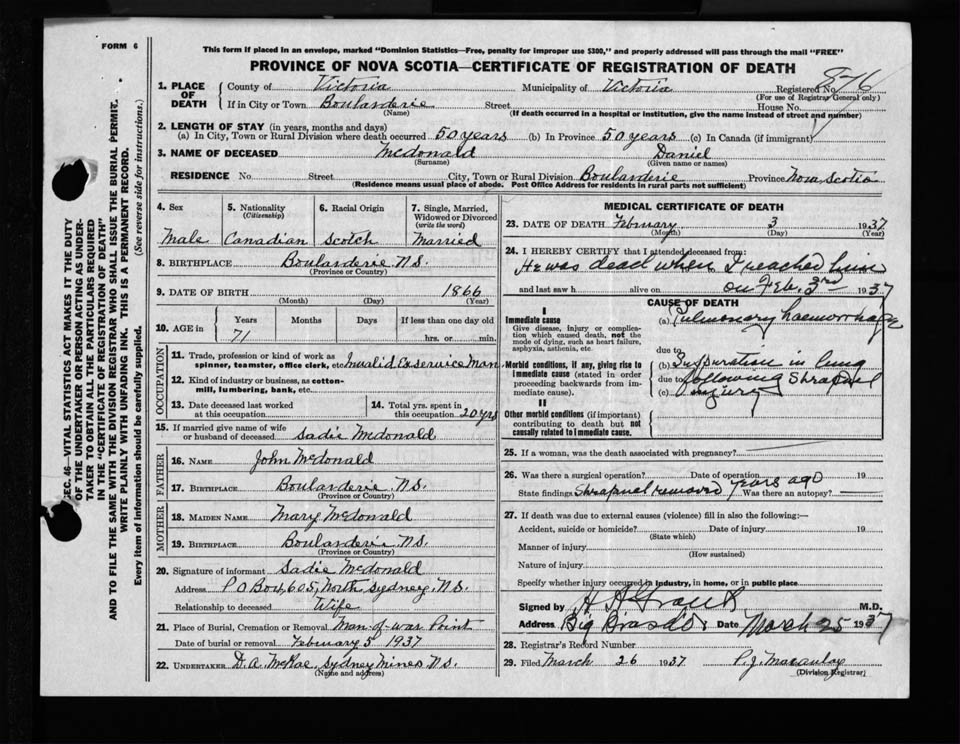 FORM 6
This form if placed in an envelope, marked "Dominion Statistics—Free, penalty for improper use $300," and properly addressed will pass through the mail "FREE"
PROVINCE OF NOVA SCOTIA—CERTIFICATE OF REGISTRATION OF DEATH
SEC. 46—VITAL STATISTICS ACT MAKES IT THE DUTY
OF THE UNDERTAKER OR PERSON ACTING AS UNDER-
TAKER TO OBTAIN ALL THE PARTICULARS REQUIRED
IN THE "CERTIFICATE OF REGISTRATION OF DEATH"
AND TO FILE THE SAME WITH THE DIVISION REGISTRAR WHO SHALL ISSUE THE BURIAL PERMIT.
WRITE PLAINLY WITH UNFADING INK. THIS IS A PERMANENT RECORD.
Every item of information should be carefully supplied. (See reverse side for instructions.)
1. PLACE OF DEATH County of Victoria Municipality of Victoria Registered No. 876
(For use of Registrar General only)
If in City or Town Boularderie Street House No.
(Name) (If death occurred in a hospital or institution, give the name instead of street and number)
2. LENGTH OF STAY (in years, months and days)
(a) In City, Town or Rural Division where death occurred 50 years (b) In Province 50 years (c) In Canada (if immigrant)
3. NAME OF DECEASED McDonald Daniel
(Surname) (Given name or names)
RESIDENCE No. Street City, Town or Rural Division Boularderie Province Nova Scotia
(Residence means usual place of abode. Post Office Address for residents in rural parts not sufficient)
4. Sex 5. Nationality (Citizenship) 6. Racial Origin 7. Single, Married, Widowed or Divorced (write the word)
Male Canadian Scotch Married
8. BIRTHPLACE Boularderie N.S.
(Province or Country)
9. DATE OF BIRTH 1866
(Month) (Day) (Year)
10. AGE in Years Months Days If less than one day old
71 hrs. or min.
OCCUPATION
11. Trade, profession or kind of work as spinner, teamster, office clerk, etc. Invalid Exservice Man
12. Kind of industry or business, as cotton-mill, lumbering, bank, etc.
13. Date deceased last worked at this occupation 14. Total yrs. spent in this occupation 20 yrs
15. If married give name of wife or husband of deceased Sadie McDonald
FATHER
16. NAME John McDonald
17. BIRTHPLACE Boularderie N.S.
(Province or Country)
MOTHER
18. MAIDEN NAME Mary McDonald
19. BIRTHPLACE Boularderie N.S.
(Province or Country)
20. Signature of informant Sadie McDonald
Address P O Box, 605, North Sydney N.S.
Relationship to deceased Wife
21. Place of Burial, Cremation or Removal Man-of-war Point
Date of burial or removal February 5 1937
22. UNDERTAKER D. A. McRae, Sydney Mines N.S.
(Name and address)
MEDICAL CERTIFICATE OF DEATH
23. DATE OF DEATH February 3 1937
(Month) (Day) (Year)
24. I HEREBY CERTIFY that I attended deceased from:
He was dead when I reached him
and last saw h alive on on Feb. 3rd 1937
CAUSE OF DEATH
I
Immediate cause
Give disease, injury or complication which caused death, not the mode of dying, such as heart failure, asphyxia, asthenia, etc.
(a) Pulmonary haemorrhage
due to
Morbid conditions, if any, giving rise to immediate cause (stated in order proceeding backwards from immediate cause).
(b) Suppuration in lung
due to following Shrapnel
(c) injury
II
Other morbid conditions (if important) contributing to death but not causally related to immediate cause.
25. If a woman, was the death associated with pregnancy?
26. Was there a surgical operation? Date of operation 19
State findings Shrapnel removed years ago Was there an autopsy?
27. If death was due to external causes (violence) fill in also the following:—
Accident, suicide or homicide? Date of injury 19
(State which)
Manner of injury
(How sustained)
Nature of injury
Specify whether injury occurred in industry, in home, or in public place
Signed by M.D.
Address Big Bras d'or Date March 25 1937
28. Registrar's Record Number
29. Filed March 26 1937. P. J. Macaulay
(Division Registrar)